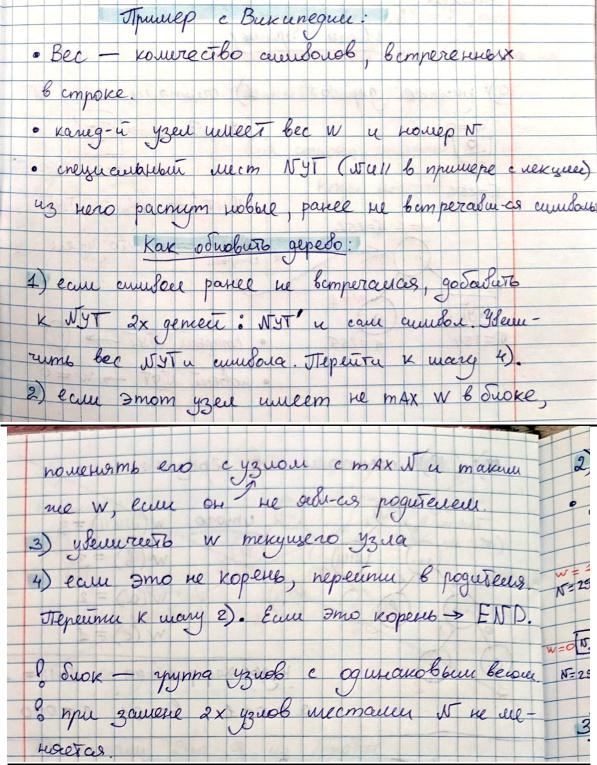 Пример с Википедии:
• Вес — количество символов, встреченных
в строке.
• кажд-й узел имеет вес W и номер N
• специальный лист NYT (Null в примере с лекции)
из него растут новые, ранее не встречавш-ся символы
Как обновить дерево:
1) если символ ранее не встречался, добавить
к NYT 2х детей: NYT' и сам символ. Увели-
чить вес NYT и символа. Перейти к шагу 4).
2) если этот узел имеет не max W в блоке,
поменять его с узлом с max N и таким
же W, если он не явл-ся родителем.
3) увеличить W текущего узла
4) если это не корень, перейти в родителя.
Перейти к шагу 2). Если это корень → END.
! блок — группа узлов с одинаковым весом.
! при замене 2х узлов местами N не ме-
няется.
2)
•
W=
N=25
W=0 N
N=25
3